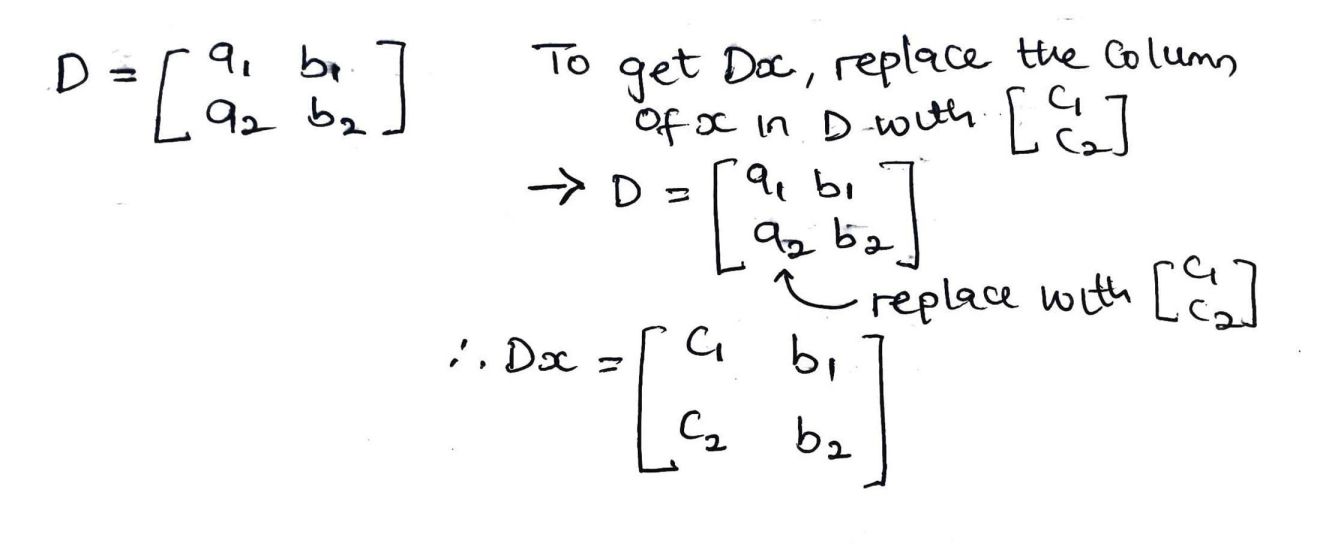 D = [ a₁ b₁ ; a₂ b₂ ]
To get Dx, replace the column
of x in D with [ c₁ ; c₂ ]
→ D = [ a₁ b₁ ; a₂ b₂ ]
replace with [ c₁ ; c₂ ]
∴ Dx = [ c₁ b₁ ; c₂ b₂ ]